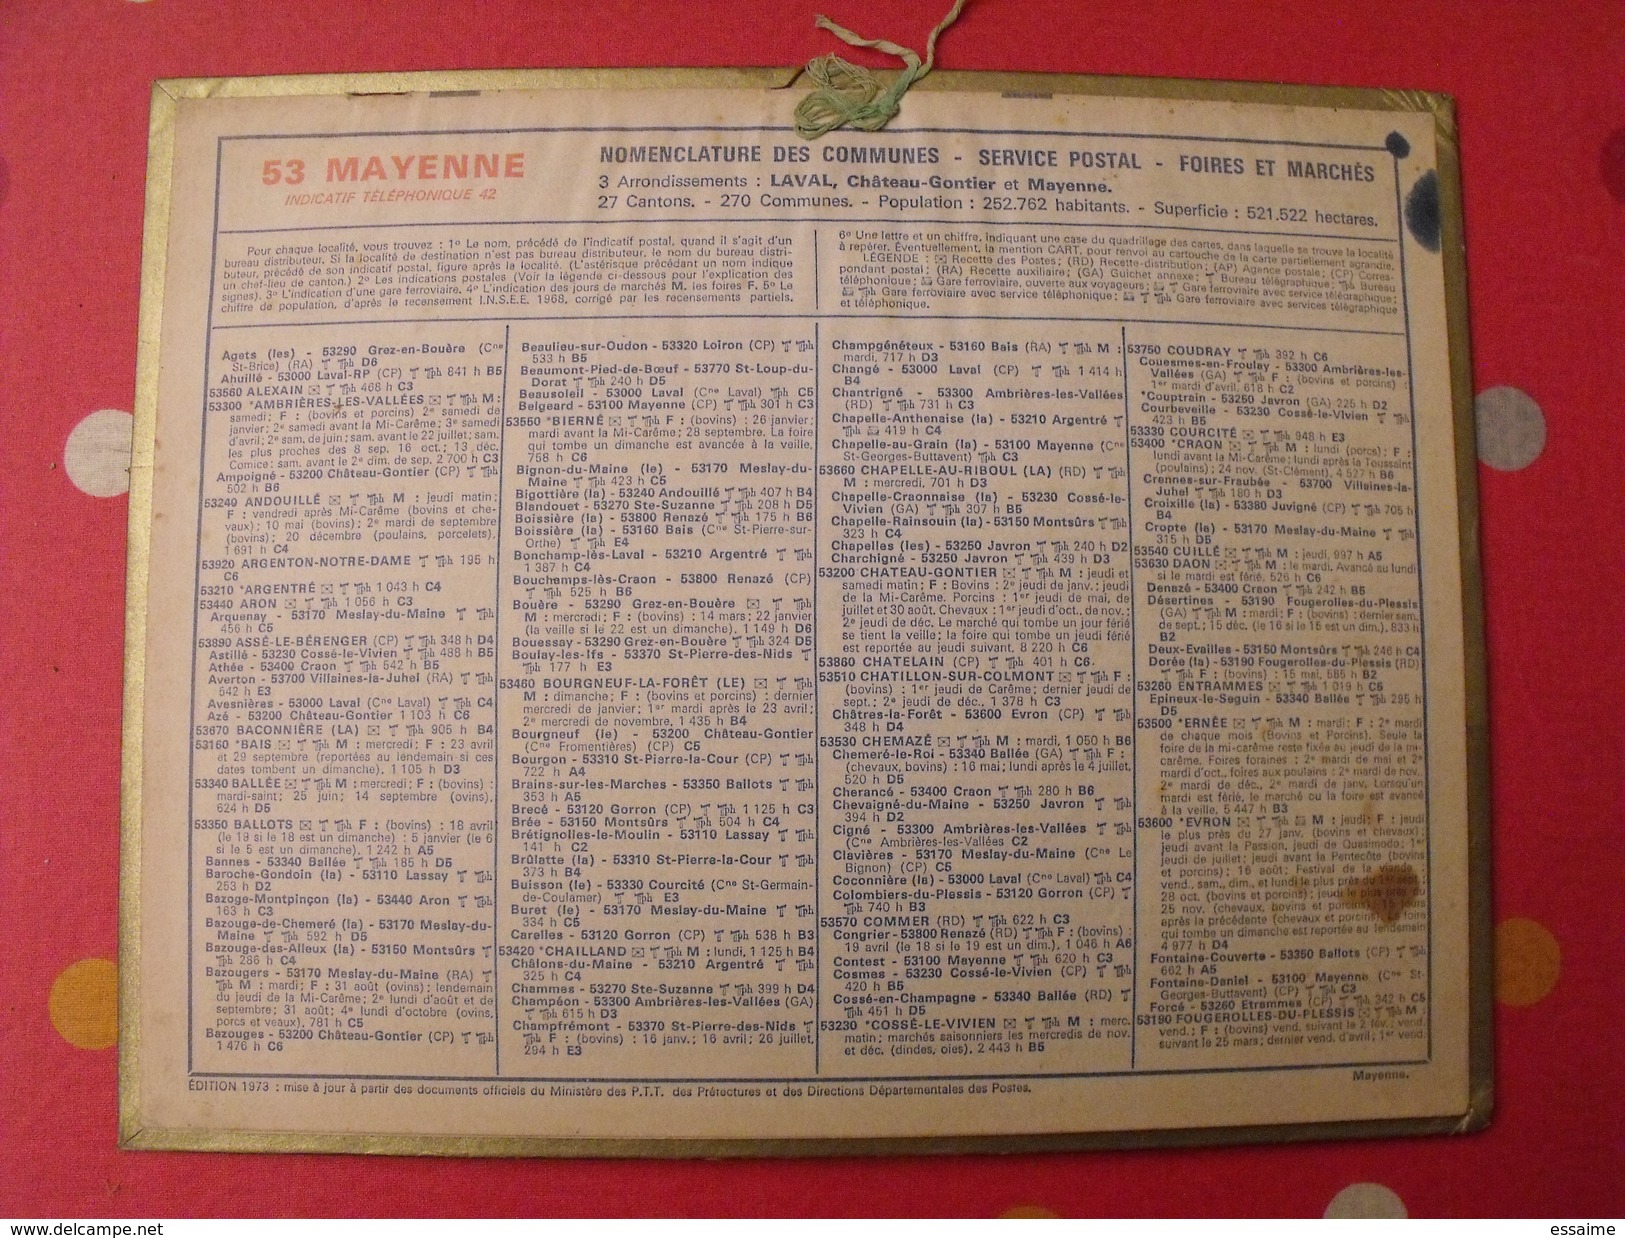 53 MAYENNE
INDICATIF TÉLÉPHONIQUE 42
NOMENCLATURE DES COMMUNES - SERVICE POSTAL - FOIRES ET MARCHÉS
3 Arrondissements : LAVAL, Château-Gontier et Mayenne.
27 Cantons. - 270 Communes. - Population : 252.762 habitants. - Superficie : 521.522 hectares.
Pour chaque localité, vous trouvez : 1º Le nom, précédé de l'indicatif postal, quand il s'agit d'un
bureau distributeur. Si la localité de destination n'est pas bureau distributeur, le nom du bureau distri-
buteur, précédé de son indicatif postal, figure après la localité. (L'astérisque précédant un nom indique
un chef-lieu de canton.) 2º Les indications postales (Voir la légende ci-dessous pour l'explication des
signes). 3º L'indication d'une gare ferroviaire. 4º L'indication des jours de marchés M. les foires F. 5º Le
chiffre de population, d'après le recensement I.N.S.E.E. 1968, corrigé par les recensements partiels.
6º Une lettre et un chiffre, indiquant une case du quadrillage des cartes, dans laquelle se trouve la localité
à repérer. Éventuellement, la mention CART, pour renvoi au cartouche de la carte partiellement agrandie.
LÉGENDE : ✉ Recette des Postes; (RD) Recette-distribution; (AP) Agence postale; (CP) Corres-
pondant postal; (RA) Recette auxiliaire; (GA) Guichet annexe; Bureau télégraphique; Bureau
téléphonique; Gare ferroviaire, ouverte aux voyageurs; Gare ferroviaire avec service télégraphique;
Gare ferroviaire avec service téléphonique; Gare ferroviaire avec services télégraphique
et téléphonique.
Agets (les) - 53290 Grez-en-Bouère (Cne
St-Brice) (RA) D6
Ahuillé - 53000 Laval-RP (CP) 841 h B5
53560 ALEXAIN ✉ 468 h C3
53300 *AMBRIÈRES-LES-VALLÉES ✉ M :
samedi; F : (bovins et porcins) 2e samedi de
janvier; 2e samedi avant la Mi-Carême; 3e samedi
d'avril; 2e sam. de juin; sam. avant le 22 juillet; sam.
les plus proches des 8 sep. 16 oct.; 13 déc.
Comice : sam. avant le 2e dim. de sep. 2 700 h C3
Ampoigné - 53200 Château-Gontier (CP)
502 h B6
53240 ANDOUILLÉ ✉ M : jeudi matin;
F : vendredi après Mi-Carême (bovins et che-
vaux); 10 mai (bovins); 2e mardi de septembre
(bovins); 20 décembre (poulains, porcelets).
1 691 h C4
53920 ARGENTON-NOTRE-DAME 195 h
C6
53210 *ARGENTRÉ ✉ 1 043 h C4
53440 ARON ✉ 1 056 h C3
Arquenay - 53170 Meslay-du-Maine
456 h C5
53890 ASSÉ-LE-BÉRENGER (CP) 348 h D4
Astillé - 53230 Cossé-le-Vivien 488 h B5
Athée - 53400 Craon 542 h B5
Averton - 53700 Villaines-la-Juhel (RA)
542 h E3
Avesnières - 53000 Laval (Cne Laval) C4
Azé - 53200 Château-Gontier 1 103 h C6
53670 BACONNIÈRE (LA) ✉ 905 h B4
53160 *BAIS ✉ M : mercredi; F : 23 avril
et 29 septembre (reportées au lendemain si ces
dates tombent un dimanche). 1 105 h D3
53340 BALLÉE ✉ M : mercredi; F : (bovins) :
mardi-saint; 25 juin; 14 septembre (ovins).
624 h D5
53350 BALLOTS ✉ F : (bovins) : 18 avril
(le 19 si le 18 est un dimanche) : 5 janvier (le 6
si le 5 est un dimanche). 1 242 h A5
Bannes - 53340 Ballée 185 h D5
Baroche-Gondoin (la) - 53110 Lassay
253 h D2
Bazoge-Montpinçon (la) - 53440 Aron
163 h C3
Bazouge-de-Chemeré (la) - 53170 Meslay-du-
Maine 592 h D5
Bazouge-des-Alleux (la) - 53150 Montsûrs
286 h C4
Bazougers - 53170 Meslay-du-Maine (RA)
M : mardi; F : 31 août (ovins); lendemain
du jeudi de la Mi-Carême; 2e lundi d'août et de
septembre; 31 août; 4e lundi d'octobre (ovins,
porcs et veaux). 781 h C5
Bazouges - 53200 Château-Gontier (CP)
1 476 h C6
Beaulieu-sur-Oudon - 53320 Loiron (CP)
533 h B5
Beaumont-Pied-de-Bœuf - 53770 St-Loup-du-
Dorat 240 h D5
Beausoleil - 53000 Laval (Cne Laval) C5
Belgeard - 53100 Mayenne (CP) 301 h C3
53550 *BIERNÉ ✉ F : (bovins) : 26 janvier;
mardi avant la Mi-Carême; 28 septembre. La foire
qui tombe un dimanche est avancée à la veille.
758 h C6
Bignon-du-Maine (le) - 53170 Meslay-du-
Maine 423 h C5
Bigottière (la) - 53240 Andouillé 407 h B4
Blandouet - 53270 Ste-Suzanne 208 h D5
Boissière (la) - 53800 Renazé 175 h B6
Boissière (la) - 53160 Bais (Cne St-Pierre-sur-
Orthe) E4
Bonchamp-lès-Laval - 53210 Argentré
1 387 h C4
Bouchamps-lès-Craon - 53800 Renazé (CP)
525 h B6
Bouère - 53290 Grez-en-Bouère ✉
M : mercredi; F : (bovins) : 14 mars; 22 janvier
(la veille si le 22 est un dimanche). 1 149 h D6
Bouessay - 53290 Grez-en-Bouère 324 D5
Boulay-les-Ifs - 53370 St-Pierre-des-Nids
177 h E3
53460 BOURGNEUF-LA-FORÊT (LE) ✉
M : dimanche; F : (bovins et porcins) : dernier
mercredi de janvier; 1er mardi après le 23 avril;
2e mercredi de novembre. 1 435 h B4
Bourgneuf (le) - 53200 Château-Gontier
(Cne Fromentières) (CP) C5
Bourgon - 53310 St-Pierre-la-Cour (CP)
722 h A4
Brains-sur-les-Marches - 53350 Ballots
353 h A5
Brecé - 53120 Gorron (CP) 1 125 h C3
Brée - 53150 Montsûrs 504 h C4
Brétignolles-le-Moulin - 53110 Lassay
141 h C2
Brûlatte (la) - 53310 St-Pierre-la-Cour
373 h B4
Buisson (le) - 53330 Courcité (Cne St-Germain-
de-Coulamer) E3
Buret (le) - 53170 Meslay-du-Maine
334 h C5
Carelles - 53120 Gorron (CP) 538 h B3
53420 *CHAILLAND ✉ M : lundi. 1 125 h B4
Châlons-du-Maine - 53210 Argentré
325 h C4
Chammes - 53270 Ste-Suzanne 399 h D4
Champéon - 53300 Ambrières-les-Vallées (GA)
615 h D3
Champfrémont - 53370 St-Pierre-des-Nids
F : (bovins) : 16 janv.; 16 avril; 26 juillet.
294 h E3
Champgénéteux - 53160 Bais (RA) M :
mardi. 717 h D3
Changé - 53000 Laval (CP) 1 414 h
B4
Chantrigné - 53300 Ambrières-les-Vallées
(RD) 731 h C3
Chapelle-Anthenaise (la) - 53210 Argentré
419 h C4
Chapelle-au-Grain (la) - 53100 Mayenne (Cne
St-Georges-Buttavent) C3
53660 CHAPELLE-AU-RIBOUL (LA) (RD)
M : mercredi. 701 h D3
Chapelle-Craonnaise (la) - 53230 Cossé-le-
Vivien (GA) 307 h B5
Chapelle-Rainsouin (la) - 53150 Montsûrs
323 h C4
Chapelles (les) - 53250 Javron 240 h D2
Charchigné - 53250 Javron 439 h D3
53200 CHATEAU-GONTIER ✉ M : jeudi et
samedi matin; F : Bovins : 2e jeudi de janv.; jeudi
de la Mi-Carême. Porcins : 1er jeudi de mai, de
juillet et 30 août. Chevaux : 1er jeudi d'oct., de nov.;
2e jeudi de déc. Le marché qui tombe un jour férié
se tient la veille; la foire qui tombe un jeudi férié
est reportée au jeudi suivant. 8 220 h C6
53860 CHATELAIN (CP) 401 h C6.
53510 CHATILLON-SUR-COLMONT ✉ F :
(bovins) : 1er jeudi de Carême; dernier jeudi de
sept.; 2e jeudi de déc., 1 378 h C3
Châtres-la-Forêt - 53600 Evron (CP)
348 h D4
53530 CHEMAZÉ ✉ M : mardi. 1 050 h B6
Chemeré-le-Roi - 53340 Ballée (GA) F :
(chevaux, bovins) : 16 mai; lundi après le 4 juillet.
520 h D5
Cherancé - 53400 Craon 280 h B6
Chevaigné-du-Maine - 53250 Javron
394 h D2
Cigné - 53300 Ambrières-les-Vallées
(Cne Ambrières-les-Vallées C2
Clavières - 53170 Meslay-du-Maine (Cne Le
Bignon) (CP) C5
Coconnière (la) - 53000 Laval (Cne Laval) C4
Colombiers-du-Plessis - 53120 Gorron (CP)
740 h B3
53570 COMMER (RD) 622 h C3
Congrier - 53800 Renazé (RD) F : (bovins) :
19 avril (le 18 si le 19 est un dim.). 1 046 h A6
Contest - 53100 Mayenne 620 h C3
Cosmes - 53230 Cossé-le-Vivien (CP)
420 h B5
Cossé-en-Champagne - 53340 Ballée (RD)
451 h D5
53230 *COSSÉ-LE-VIVIEN ✉ M : merc.
matin; marchés saisonniers les mercredis de nov.
et déc. (dindes, oies). 2 443 h B5
53750 COUDRAY 392 h C6
Couesmes-en-Froulay - 53300 Ambrières-les-
Vallées (GA) F : (bovins et porcins) :
1er mardi d'avril. 618 h C2
*Couptrain - 53250 Javron (GA) 225 h D2
Courbeveille - 53230 Cossé-le-Vivien
423 h B5
53330 COURCITÉ ✉ 948 h E3
53400 *CRAON ✉ M : lundi (porcs); F :
lundi avant la Mi-Carême; lundi après la Toussaint
(poulains); 24 nov. (St-Clément). 4 527 h B6
Crennes-sur-Fraubée - 53700 Villaines-la-
Juhel 180 h D3
Croixille (la) - 53380 Juvigné (CP) 705 h
B4
Cropte (la) - 53170 Meslay-du-Maine
315 h D5
53540 CUILLÉ ✉ M : jeudi. 997 h A5
53630 DAON ✉ M : le mardi. Avancé au lundi
si le mardi est férié. 526 h C6
Denazé - 53400 Craon 242 h B5
Désertines - 53190 Fougerolles-du-Plessis
(GA) M : mardi; F : (bovins) : dernier sam.
de sept.; 15 déc. (le 16 si le 15 est un dim.). 833 h
B2
Deux-Evailles - 53150 Montsûrs 246 h C4
Dorée (la) - 53190 Fougerolles-du-Plessis (RD)
F : (bovins) : 15 mai. 585 h B2
53260 ENTRAMMES ✉ 1 019 h C5
Epineux-le-Seguin - 53340 Ballée 295 h
D5
53500 *ERNÉE ✉ M : mardi; F : 2e mardi
de chaque mois (Bovins et Porcins). Seule la
foire de la mi-carême reste fixée au jeudi de la mi-
carême. Foires foraines : 2e mardi de mai et 2e
mardi d'oct., foires aux poulains : 2e mardi de nov.,
2e mardi de déc., 2e mardi de janv. Lorsqu'un
mardi est férié, le marché ou la foire est avancé
à la veille. 5 447 h B3
53600 *EVRON ✉ M : jeudi; F : jeudi
le plus près du 27 janv. (bovins et chevaux);
jeudi avant la Passion, jeudi de Quasimodo; 1er
jeudi de juillet; jeudi avant la Pentecôte (bovins
et porcins); 16 août; Festival de la viande
vend., sam., dim., et lundi le plus près du 1er sept.;
28 oct. (bovins et porcins); jeudi le plus près du
25 nov. (chevaux, bovins et porcins); 15 jours
après la précédente (chevaux et porcins). La foire
qui tombe un dimanche est reportée au lendemain
4 977 h D4
Fontaine-Couverte - 53350 Ballots (CP)
662 h A5
Fontaine-Daniel - 53100 Mayenne (Cne St-
Georges-Buttavent) (CP) C3
Forcé - 53260 Etrammes (CP) 342 h C5
53190 FOUGEROLLES-DU-PLESSIS ✉ M :
vend.; F : (bovins) vend. suivant le 2 fév.; vend.
suivant le 25 mars; dernier vend. d'avril; 1er vend.
ÉDITION 1973 : mise à jour à partir des documents officiels du Ministère des P.T.T. des Préfectures et des Directions Départementales des Postes.
Mayenne.
delcampe.net
essaime